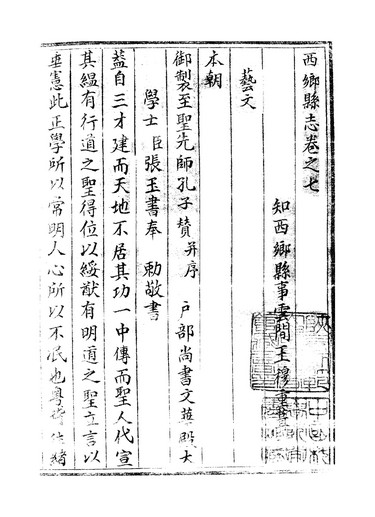 西鄉縣志卷之七
知西鄉縣事雲間王穆重
藝文
本朝
御製至聖先師孔子贊并序 戶部尚書文華殿大
學士臣張玉書奉 勅敬書
蓋自三才建而天地不居其功一中傳而聖人代宣
其縕有行道之聖得位以綏猷有明道之聖立言以
垂憲此正學所以常明人心所以不泯也粵稽往緒